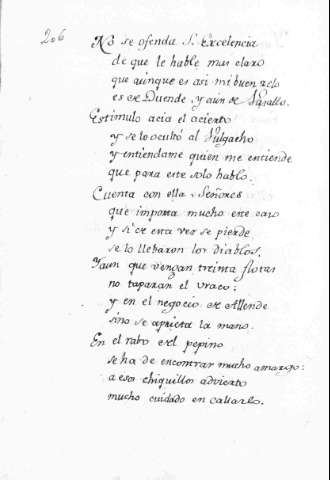 206
No se ofenda S. Excelencia
de que le hable mas claro
que aunque es asi mi buen zelo
es de Duende, y aun de Vasallo.
Estimulo acia el acierto
y se lo ocultó al Vulgacho
y entiendame quien me entiende
que para este solo hablo.
Cuenta con ella Señores
que importa mucho este caso
y si de esta vez se pierde
se lo llebaron los diablos.
Y aun que vengan treinta flotas
no taparan el uraco;
y en el negocio de Allende
sino se aprieta la mano.
En el rabo del pepino
se ha de encontrar mucho amargo:
a esos chiquillos advierto
mucho cuidado en callarlo.